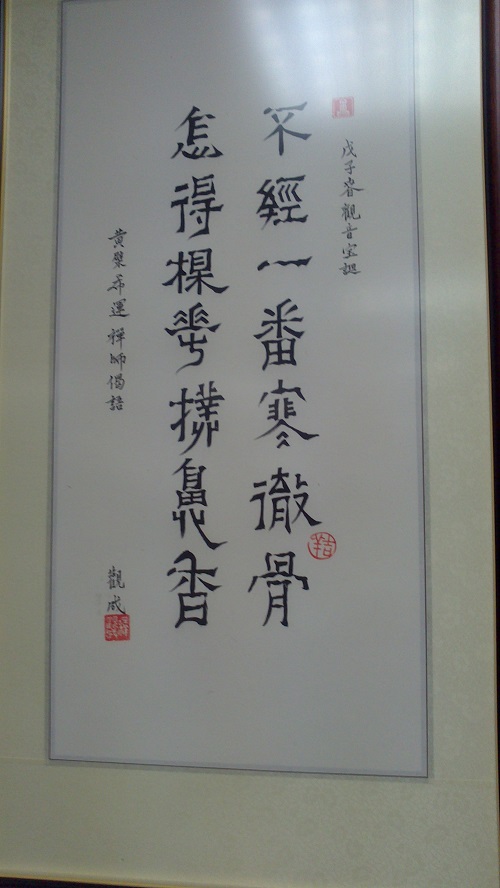 戊子春觀音宝誕
不經一番寒徹骨
怎得楳華撲鼻香
黃檗希運禪師偈語
觀成